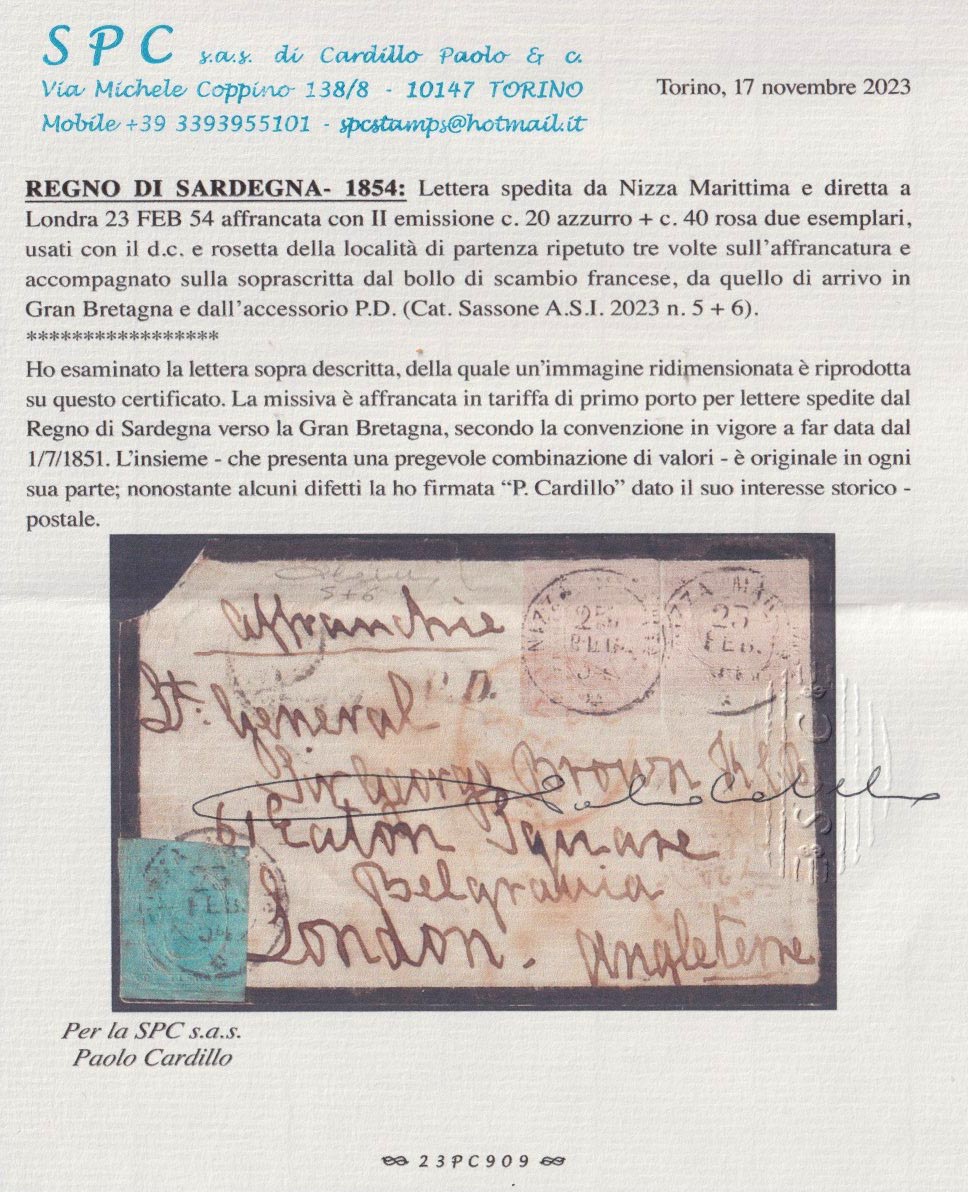 SPC s.a.s. di Cardillo Paolo & c.
Via Michele Coppino 138/8 - 10147 TORINO
Mobile +39 3393955101 - spcstamps@hotmail.it
Torino, 17 novembre 2023
REGNO DI SARDEGNA- 1854: Lettera spedita da Nizza Marittima e diretta a
Londra 23 FEB 54 affrancata con II emissione c. 20 azzurro + c. 40 rosa due esemplari,
usati con il d.c. e rosetta della località di partenza ripetuto tre volte sull'affrancatura e
accompagnato sulla soprascritta dal bollo di scambio francese, da quello di arrivo in
Gran Bretagna e dall'accessorio P.D. (Cat. Sassone A.S.I. 2023 n. 5 + 6).
*****************
Ho esaminato la lettera sopra descritta, della quale un'immagine ridimensionata è riprodotta
su questo certificato. La missiva è affrancata in tariffa di primo porto per lettere spedite dal
Regno di Sardegna verso la Gran Bretagna, secondo la convenzione in vigore a far data dal
1/7/1851. L'insieme - che presenta una pregevole combinazione di valori - è originale in ogni
sua parte; nonostante alcuni difetti la ho firmata “P. Cardillo” dato il suo interesse storico -
postale.
5+6
affranchie
NIZZA MAR
23
FEB.
D.
Lt. General
Sir George Brown
61 Eaton Square
Belgravia
London. Angleterre
23
FEB.
54
Per la SPC s.a.s.
Paolo Cardillo
23PC909